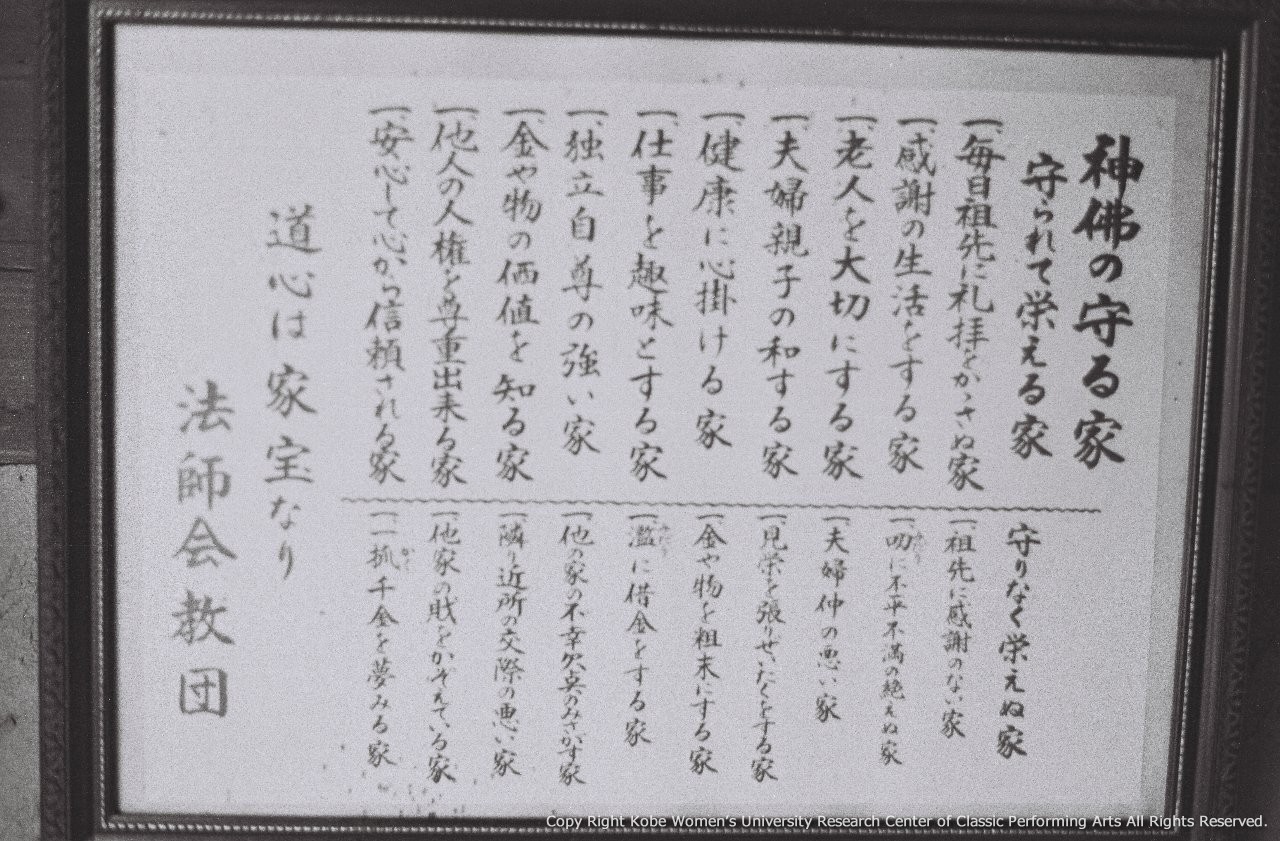 神佛の守る家
守られて栄える家
一、毎日祖先に礼拝をかゝさぬ家
一、感謝の生活をする家
一、老人を大切にする家
一、夫婦親子の和する家
一、健康に心掛ける家
一、仕事を趣味とする家
一、独立自尊の強い家
一、金や物の価値を知る家
一、他人の人権を尊重出来る家
一、安心して心から信頼される家
守りなく栄えぬ家
一、祖先に感謝のない家
一、に不平不満の絶えぬ家
一、夫婦仲の悪い家
一、見栄を張りぜいたくをする家
一、金や物を粗末にする家
一、濫に借金をする家
一、他の家の不幸欠点のみさがす家
一、隣り近所の交際の悪い家
一、他家の財をかぞえている家
一、一抓千金を夢みる家
道心は家宝なり
法師会教団
Copy Right Kobe Women's University Research Center of Classic Performing Arts All Rights Reserved.